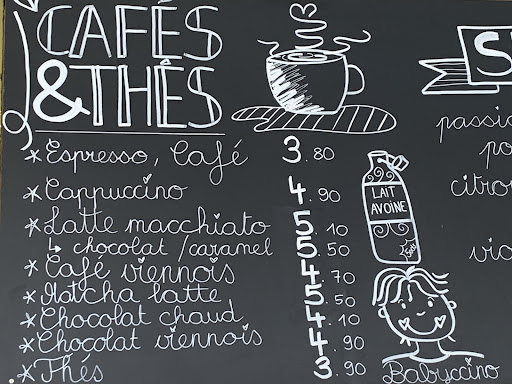 CAFÉS
&THÉS
* Espresso, Café 3.80
* Cappuccino 4.90
* Latte macchiato 5.10
↳ chocolat /caramel 5.50
* Café viennois 4.70
* Matcha latte 5.50
* Chocolat chaud 4.10
* Chocolat viennois 4.90
* Thés 3.90
LAIT
AVOINE
Babyccino
S
passio
po
citro
vio